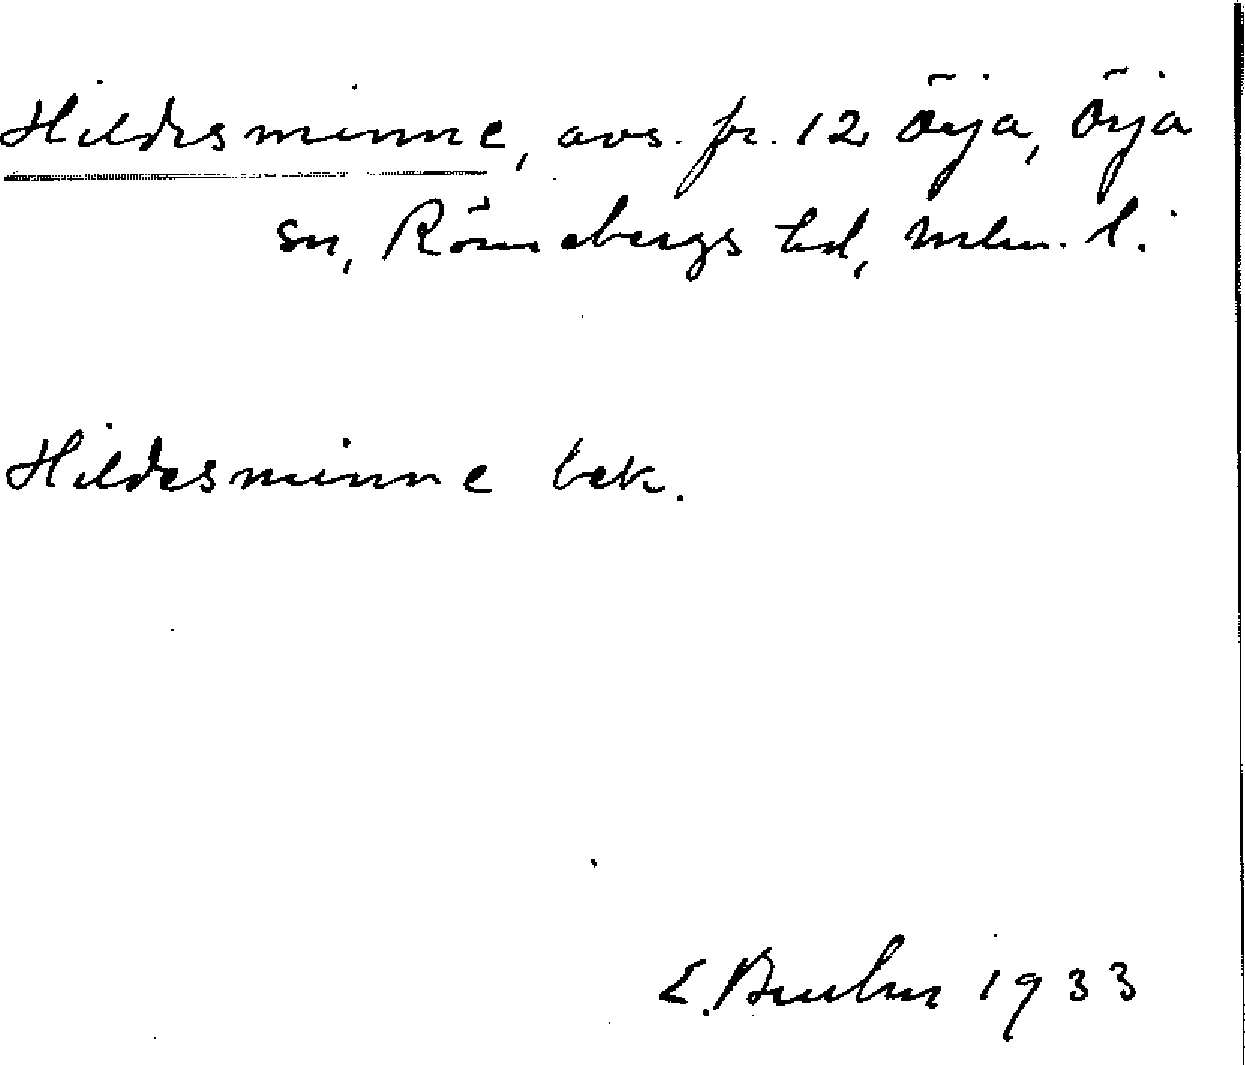 Hildesminne, avs. fr. 12 Örja, Örja
sn, Rönnebergs hd, Mlm. l.
Hildesminne bek.
E. Bruhn 1933